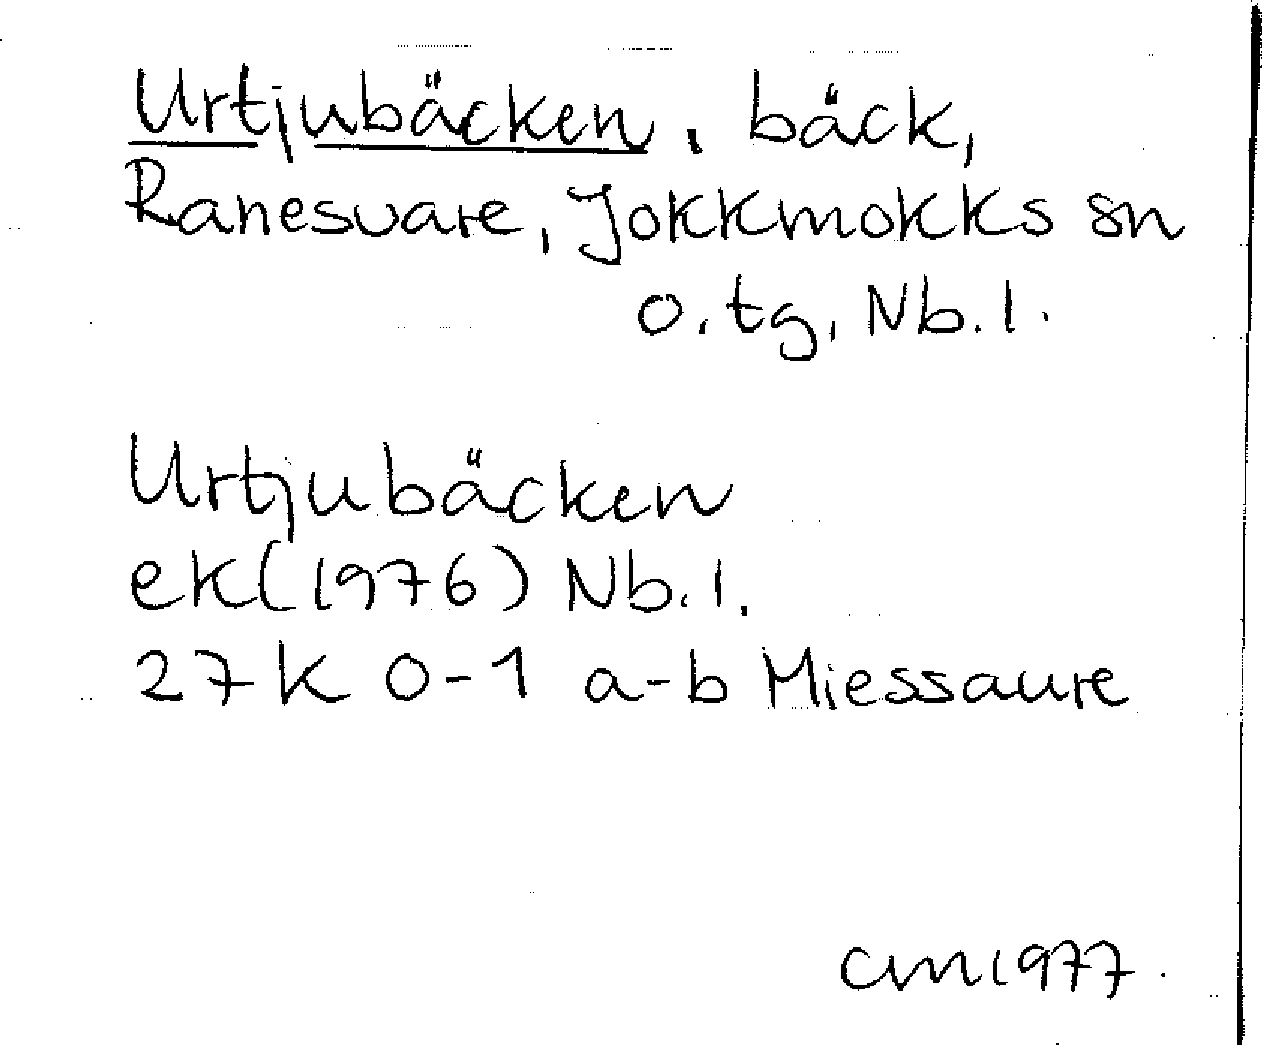 Urtjubäcken, bäck,
Ranesvare, Jokkmokks sn
o. tg, Nb. l.
Urtjubäcken
ek (1976) Nb. l.
27 K 0-1 a-b Miessaure
CM 1977.